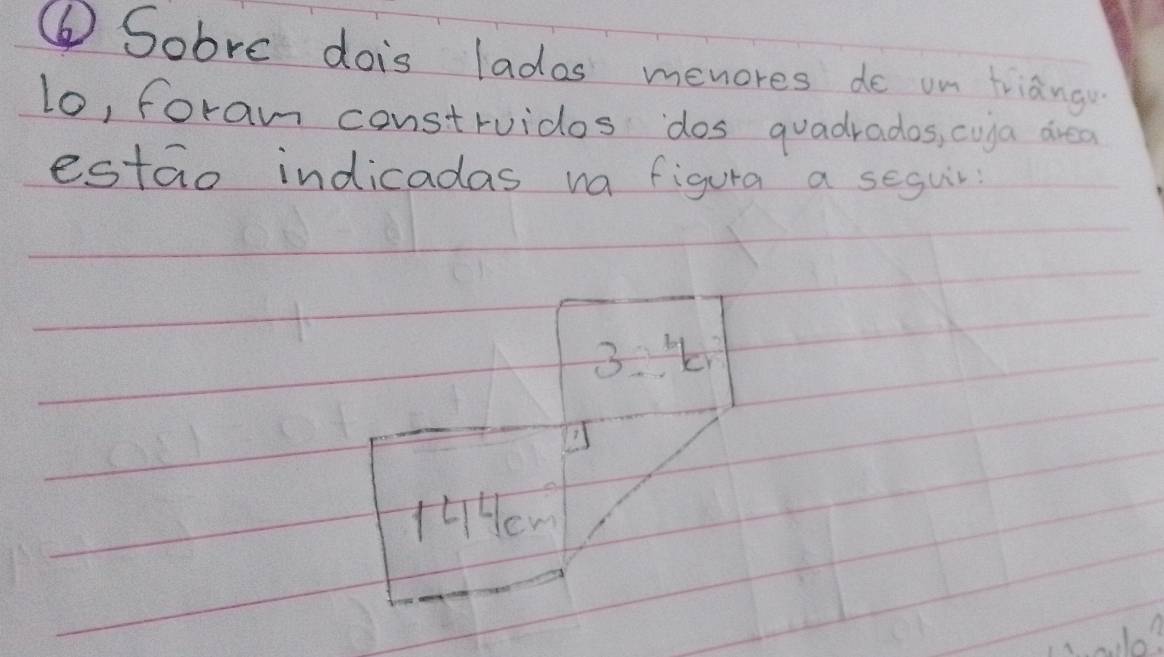 6 Sobre dois lados menores de um triângu-
lo, foram construidos dos quadrados, cuja área
estão indicadas na figura a seguir:
144cm²